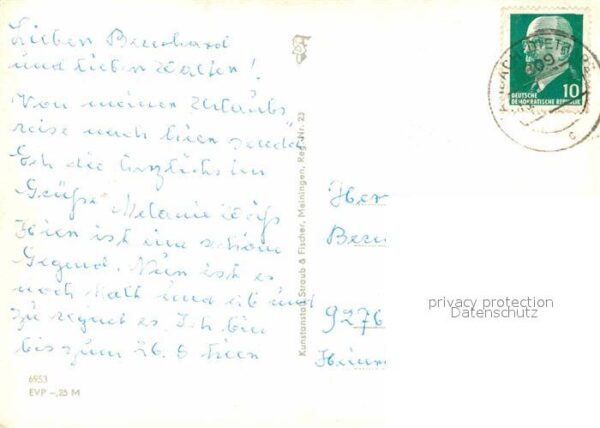 Lieben Bernhard
und lieben Walter!
Von meiner Urlaubs
reise nach hier sende
Euch die herzlichsten
Grüße Melanie Weiß
Hier ist eine schöne
Gegend. Nun ist es
noch kalt und ab und
zu regnet es. Ich bin
bis zum 26. 6 hier
6953
EVP -,25 M
Kunstanstalt Straub & Fischer, Meiningen, Reg.-Nr. 23
10
DEUTSCHE
DEMOKRATISCHE REPUBLIK
c
Her
Bern
9276
privacy protection
Datenschutz